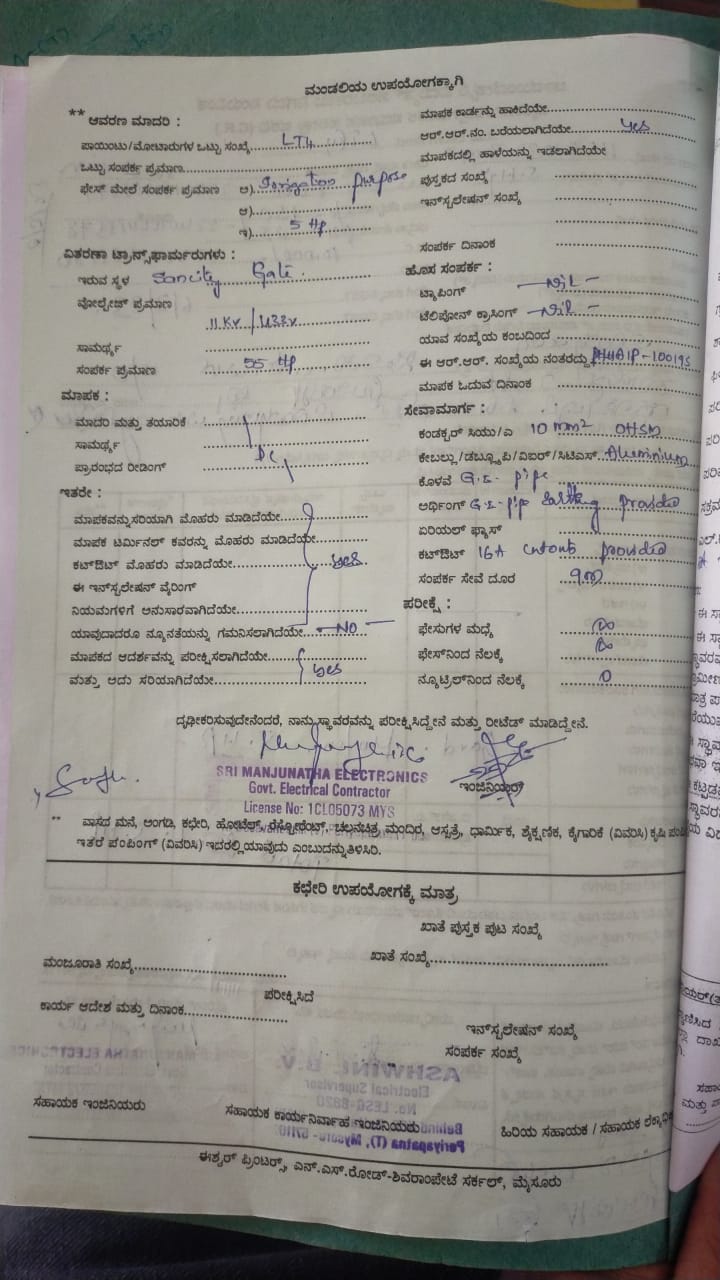 ಮಂಡಲಿಯ ಉಪಯೋಗಕ್ಕಾಗಿ
** ಆವರಣ ಮಾದರಿ :
ಪಾಯಿಂಟು/ಮೋಟಾರುಗಳ ಒಟ್ಟು ಸಂಖ್ಯೆ.....LT4
ಒಟ್ಟು ಸಂಪರ್ಕ ಪ್ರಮಾಣ
ಫೇಸ್ ಮೇಲೆ ಸಂಪರ್ಕ ಪ್ರಮಾಣ ಅ) Irrigation purpose
ಆ)
ಇ) 5 Hp
ವಿತರಣಾ ಟ್ರಾನ್ಸ್‌ಫಾರ್ಮರುಗಳು :
ಇರುವ ಸ್ಥಳ Sancity Gate
ವೋಲ್ಟೇಜ್ ಪ್ರಮಾಣ
11 KV / 433v
ಸಾಮರ್ಥ್ಯ
ಸಂಪರ್ಕ ಪ್ರಮಾಣ 55 Hp
ಮಾಪಕ :
ಮಾದರಿ ಮತ್ತು ತಯಾರಿಕೆ
ಸಾಮರ್ಥ್ಯ DC
ಪ್ರಾರಂಭದ ರೀಡಿಂಗ್
ಇತರೇ :
ಮಾಪಕವನ್ನು ಸರಿಯಾಗಿ ಮೊಹರು ಮಾಡಿದೆಯೇ
ಮಾಪಕ ಟರ್ಮಿನಲ್ ಕವರನ್ನು ಮೊಹರು ಮಾಡಿದೆಯೇ
ಕಟ್‌ಔಟ್ ಮೊಹರು ಮಾಡಿದೆಯೇ yes
ಈ ಇನ್‌ಸ್ಟಲೇಷನ್ ವೈರಿಂಗ್
ನಿಯಮಗಳಿಗೆ ಅನುಸಾರವಾಗಿದೆಯೇ
ಯಾವುದಾದರೂ ನ್ಯೂನತೆಯನ್ನು ಗಮನಿಸಲಾಗಿದೆಯೇ — NO —
ಮಾಪಕದ ಆದರ್ಶವನ್ನು ಪರೀಕ್ಷಿಸಲಾಗಿದೆಯೇ
ಮತ್ತು ಅದು ಸರಿಯಾಗಿದೆಯೇ yes
ಮಾಪಕ ಕಾರ್ಡನ್ನು ಹಾಕಿದೆಯೇ
ಆರ್.ಆರ್.ನಂ. ಬರೆಯಲಾಗಿದೆಯೇ yes
ಮಾಪಕದಲ್ಲಿ ಹಾಳೆಯನ್ನು ಇಡಲಾಗಿದೆಯೇ
ಪುಸ್ತಕದ ಸಂಖ್ಯೆ
ಇನ್‌ಸ್ಟಲೇಷನ್ ಸಂಖ್ಯೆ
ಸಂಪರ್ಕ ದಿನಾಂಕ
ಹೊಸ ಸಂಪರ್ಕ :
ಟ್ಯಾಪಿಂಗ್ — Nil —
ಟೆಲಿಪೋನ್ ಕ್ರಾಸಿಂಗ್ — Nil —
ಯಾವ ಸಂಖ್ಯೆಯ ಕಂಬದಿಂದ
ಈ ಆರ್.ಆರ್. ಸಂಖ್ಯೆಯ ನಂತರದ್ದು
ಮಾಪಕ ಓದುವ ದಿನಾಂಕ
ಸೇವಾಮಾರ್ಗ :
ಕಂಡಕ್ಟರ್ ಸಿಯು/ಎ 10 mm2 OHSM
ಕೇಬಲ್ಲು/ಡಬ್ಲ್ಯೂಪಿ/ವಿಐರ್/ಸಿಟಿಎಸ್. Aluminium
ಕೊಳವೆ G.I. pipe
ಅರ್ಥಿಂಗ್ G.I. pipe Earthing provided
ಏರಿಯಲ್ ಫ್ಯೂಸ್
ಕಟ್‌ಔಟ್ 16A cutouts provided
ಸಂಪರ್ಕ ಸೇವೆ ದೂರ
ಪರೀಕ್ಷೆ :
ಫೇಸುಗಳ ಮಧ್ಯೆ ∞
ಫೇಸ್‌ನಿಂದ ನೆಲಕ್ಕೆ ∞
ನ್ಯೂಟ್ರಲ್‌ನಿಂದ ನೆಲಕ್ಕೆ 0
ದೃಢೀಕರಿಸುವುದೇನೆಂದರೆ, ನಾನು ಸ್ಥಾವರವನ್ನು ಪರೀಕ್ಷಿಸಿದ್ದೇನೆ ಮತ್ತು ರೀಟೆಡ್ ಮಾಡಿದ್ದೇನೆ.
SRI MANJUNATHA ELECTRONICS
Govt. Electrical Contractor
License No: 1CL05073 MYS
ಇಂಜಿನಿಯರ್
** ವಾಸದ ಮನೆ, ಅಂಗಡಿ, ಕಛೇರಿ, ಹೋಟೆಲ್, ರೆಸ್ಟೋರೆಂಟ್, ಚಲನಚಿತ್ರ ಮಂದಿರ, ಆಸ್ಪತ್ರೆ, ಧಾರ್ಮಿಕ, ಶೈಕ್ಷಣಿಕ, ಕೈಗಾರಿಕೆ (ವಿವರಿಸಿ) ಕೃಷಿ ಪಂಪಿ
ಇತರೆ ಪಂಪಿಂಗ್ (ವಿವರಿಸಿ) ಇದರಲ್ಲಿ ಯಾವುದು ಎಂಬುದನ್ನು ತಿಳಿಸಿರಿ.
ಕಛೇರಿ ಉಪಯೋಗಕ್ಕೆ ಮಾತ್ರ
ಖಾತೆ ಪುಸ್ತಕ ಪುಟ ಸಂಖ್ಯೆ
ಖಾತೆ ಸಂಖ್ಯೆ
ಮಂಜೂರಾತಿ ಸಂಖ್ಯೆ
ಪರೀಕ್ಷಿಸಿದೆ
ಕಾರ್ಯ ಆದೇಶ ಮತ್ತು ದಿನಾಂಕ
ಇನ್‌ಸ್ಟಲೇಷನ್ ಸಂಖ್ಯೆ
ಸಂಪರ್ಕ ಸಂಖ್ಯೆ
ಸಹಾಯಕ ಇಂಜಿನಿಯರು
ಸಹಾಯಕ ಕಾರ್ಯನಿರ್ವಾಹ ಇಂಜಿನಿಯರು
ಹಿರಿಯ ಸಹಾಯಕ / ಸಹಾಯಕ
ಈಶ್ವರ್ ಪ್ರಿಂಟರ್ಸ್, ಎನ್.ಎಸ್.ರೋಡ್-ಶಿವರಾಂಪೇಟೆ ಸರ್ಕಲ್, ಮೈಸೂರು